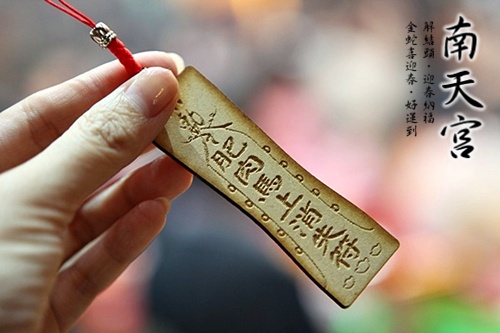 南天宮
解結頭・迎春納福
金蛇喜迎春・好運到
肥肉馬上消失符